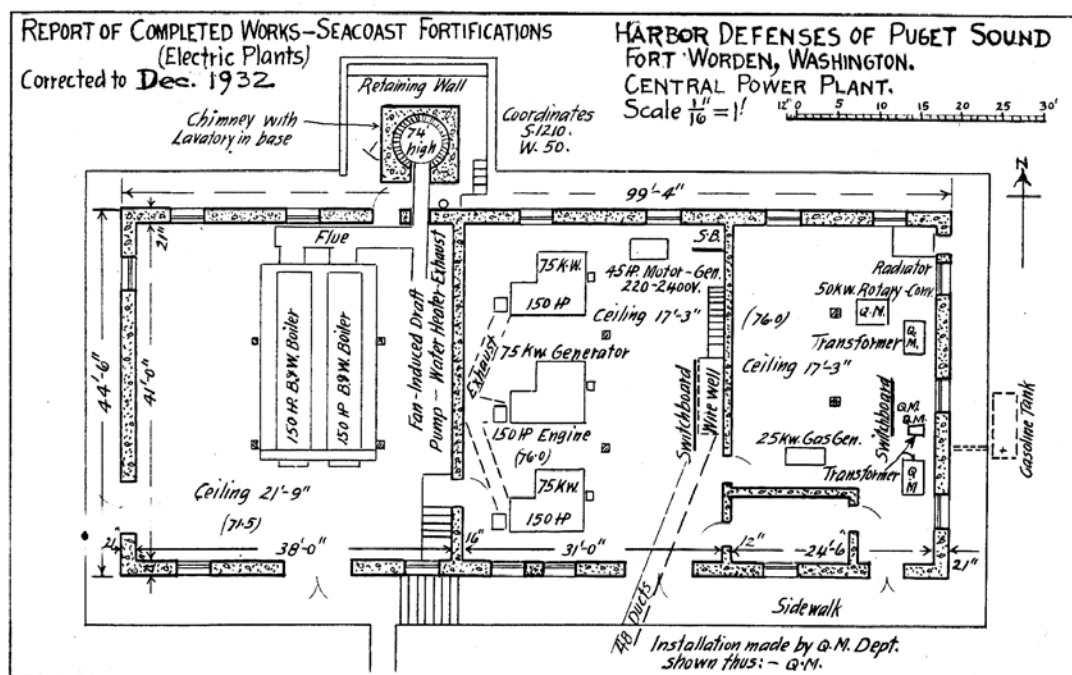 REPORT OF COMPLETED WORKS–SEACOAST FORTIFICATIONS
(Electric Plants)
Corrected to Dec. 1932
HARBOR DEFENSES OF PUGET SOUND
FORT WORDEN, WASHINGTON.
CENTRAL POWER PLANT.
Scale 1/16" = 1'
12" 0 5 10 15 20 25 30'
Retaining Wall
Chimney with
Lavatory in base
74'
high
Coordinates
S.1210.
W. 50.
N
99'-4"
44'-6"
41'-0"
21"
Flue
150 HP. B&W. Boiler
150 HP B&W. Boiler
Fan-Induced Draft
Pump-Water Heater-Exhaust
Ceiling 21'-9"
(71.5)
38'-0"
75 K.W.
150 HP
45 HP. Motor-Gen.
220-2400V.
S.B.
Ceiling 17'-3"
Exhaust
75 Kw. Generator
150 HP Engine
(76.0)
75 KW.
150 HP
Switchboard
Wire well
16"
31'-0"
48 Ducts
Radiator
50 Kw. Rotary-Conv.
Q.M.
(76.0)
Transformer
Q.
M.
Ceiling 17'-3"
Switchboard
Q.M.
Q.M.
25 Kw. Gas Gen.
Transformer
Q.
M.
Gasoline Tank
12"
24'-6"
21"
Sidewalk
Installation made by Q.M. Dept.
shown thus:- Q.M.